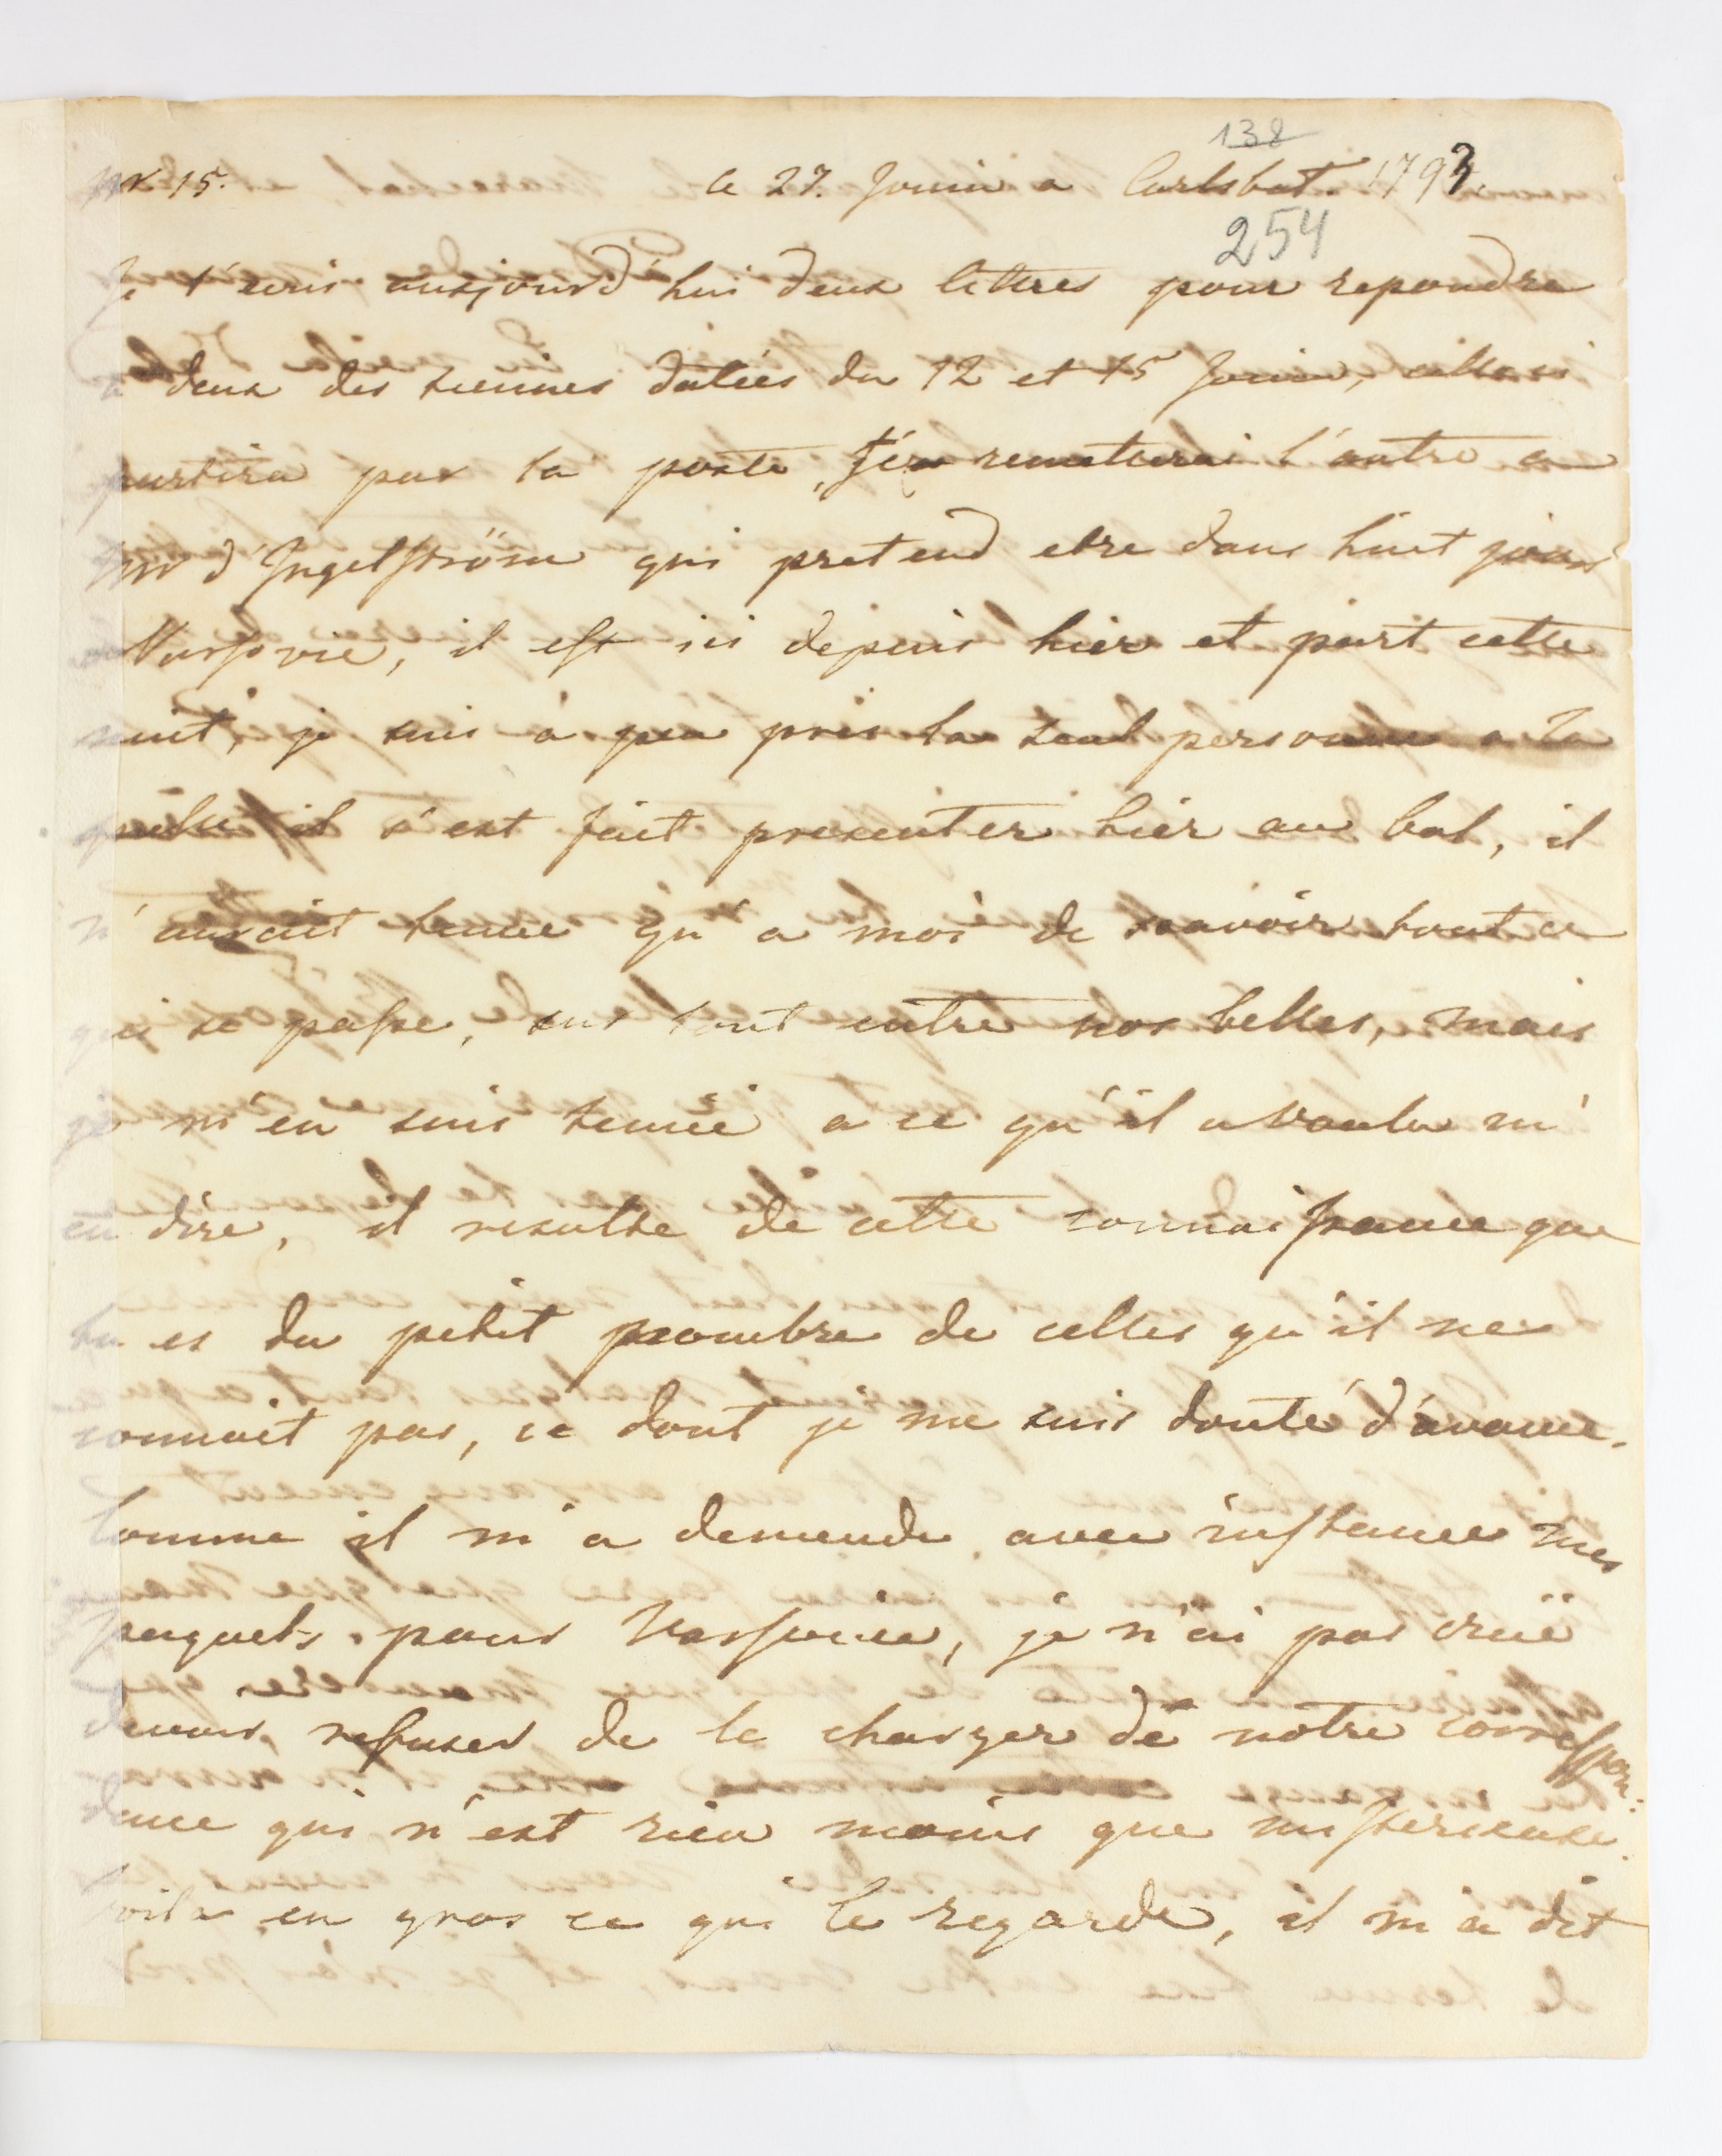 138
Nr 15. le 27. Jouin a Carlsbat. 1793.
254
Je t'ecris aujourd'hui deux lettres pour repondre
a deux des tiennes datées du 12 et 15 Jouin, celle ci
partira par la poste, j'en remetterai l'autre a
Mr d'Ingelström qui pretend etre dans huit jours
a Varsovie, il est ici depuis hier et part cette
nuit, je suis à peu près la seul personne a la
quelle il s'est fait presenter hier au bal, il
n'auroit tenue qu'a moi de scavoir tout ce
qui se passe, sur tout entre nos belles, mais
je m'en suis tenué a ce qu'il a voulu m'
en dire, il resulte de cette connaissance que
tu es du petit nombre de celles qu'il ne
connait pas, ce dont je me suis douté d'avance.
Comme il m'a demendu avec instance mes
paquets pour Varsovie, je n'ai pas cruë
devoir refuser de le charger de notre correspon:
dence qui n'est rien moins que misterieuse.
voila en gros ce qui le regarde, il m'a dit